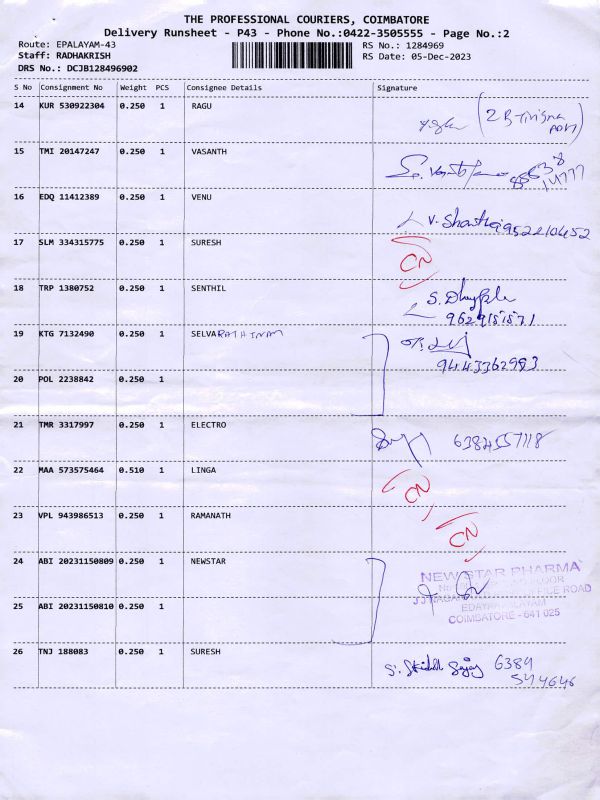 THE PROFESSIONAL COURIERS, COIMBATORE
Delivery Runsheet - P43 - Phone No.:0422-3505555 - Page No.:2
Route: EPALAYAM-43
RS No.: 1284969
Staff: RADHAKRISH
RS Date: 05-Dec-2023
DRS No.: DCJB128496902
S No Consignment No Weight PCS Consignee Details Signature
14 KUR 530922304 0.250 1 RAGU
15 TMI 20147247 0.250 1 VASANTH
16 EDQ 11412389 0.250 1 VENU
V. Shanthi 9522210452
17 SLM 334315775 0.250 1 SURESH CN
18 TRP 1380752 0.250 1 SENTHIL
9629151571
19 KTG 7132490 0.250 1 SELVARATHINAM
9443362993
20 POL 2238842 0.250 1
21 TMR 3317997 0.250 1 ELECTRO 6384557118
22 MAA 573575464 0.510 1 LINGA CN
23 VPL 943986513 0.250 1 RAMANATH CN
24 ABI 20231150809 0.250 1 NEWSTAR
NEW STAR PHARMA
OFFICE ROAD
COIMBATORE - 641 025
25 ABI 20231150810 0.250 1
26 TNJ 188083 0.250 1 SURESH
6384
544646